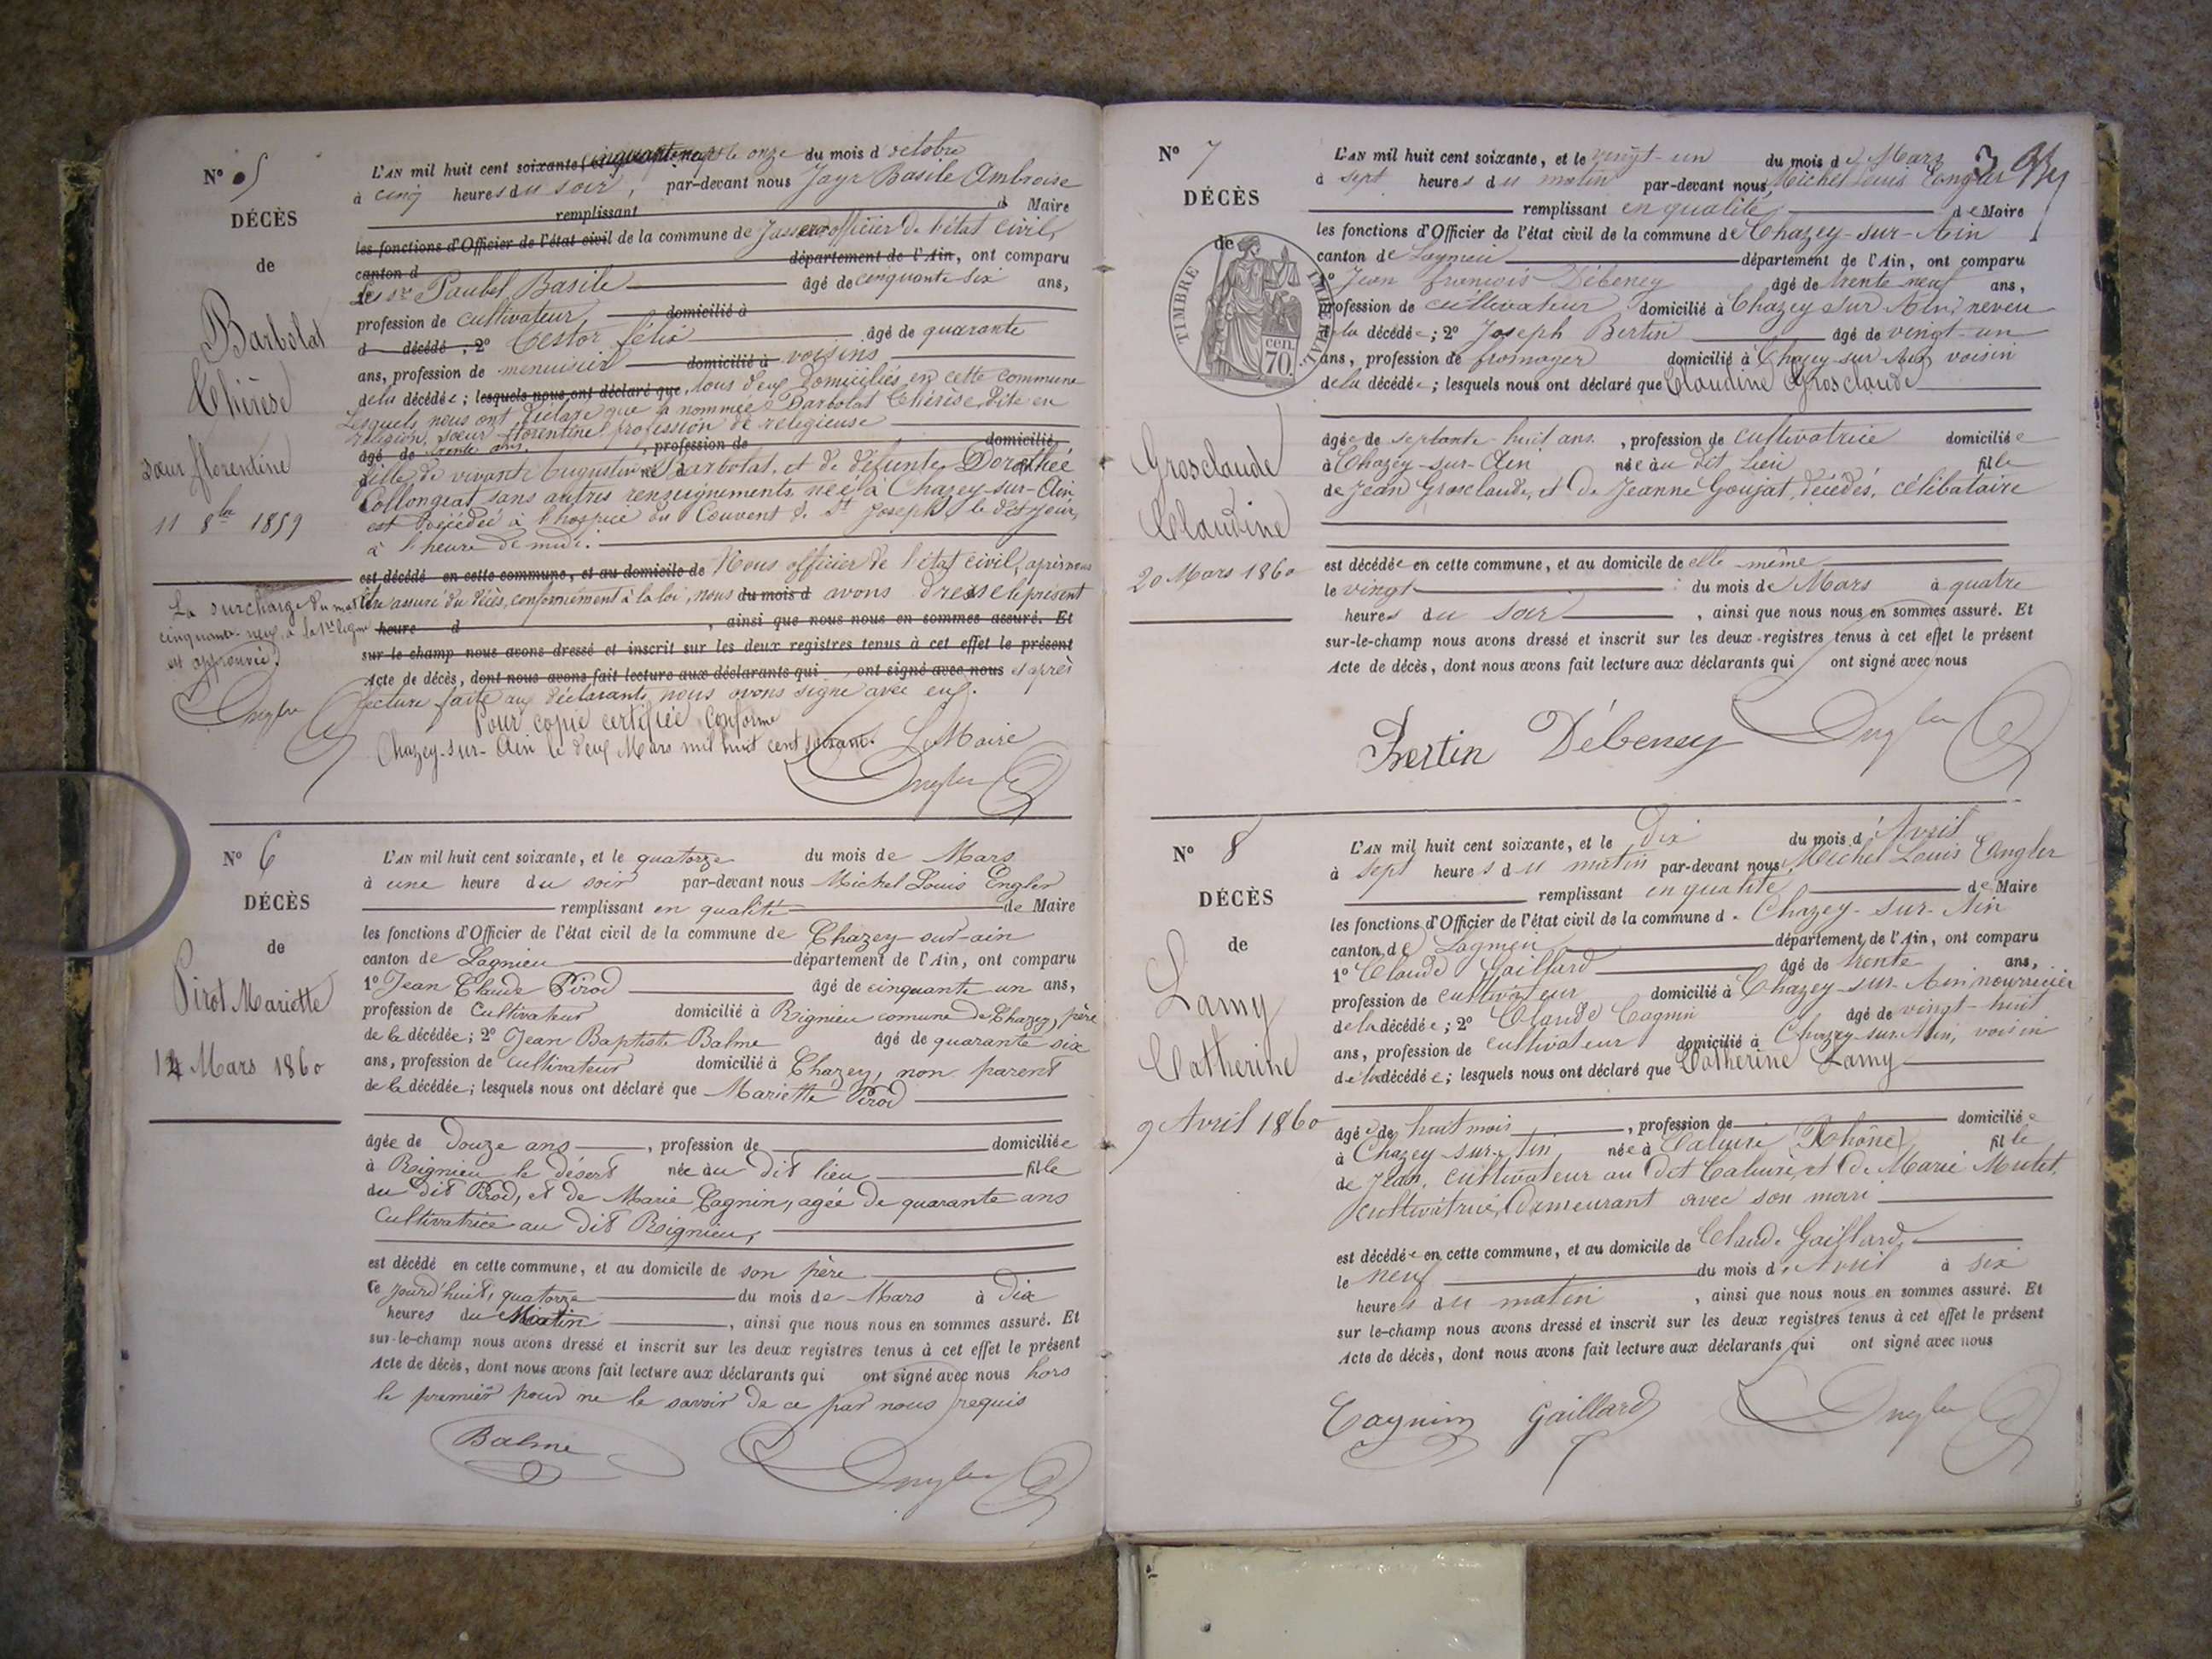 N° 5
DÉCÈS
de
Barbolat
Thérèse
sœur florentine
11 8bre 1859
La surcharge du mot
cinquante-neuf, à la 1re ligne
est approuvée
Engler
L'AN mil huit cent soixante, cinquante neuf le onze du mois d'octobre
à cinq heures du soir, par-devant nous Jayr Basile Ambroise
remplissant d Maire
les fonctions d'Officier de l'état civil de la commune de officier de l'état civil,
canton d département de l'Ain, ont comparu
Les srs Paubel Basile âgé de cinquante six ans,
profession de cultivateur, domicilié à
d décédé, 2° Cestor félix âgé de quarante
ans, profession de menuisier domicilié à voisins
de la décédée; lesquels nous ont déclaré que, tous deux domiciliés en cette commune
Lesquels nous ont déclaré que la nommée Barbolat Thérèse, dite en
religion, sœur florentine profession de religieuse
âgé de trente ans, profession de domicilié
fille de vivant Augustin Barbolat, et de défunte Dorothée
Collongeat sans autres renseignements, née à Chazey-sur-Ain,
est décédée à l'hospice du Couvent de St Joseph, le dit jour,
à l'heure de midi.
est décédé en cette commune, et au domicile de Nous officier de l'état civil, après nous
être assuré du décès, conformément à la loi, nous du mois d avons dressé le présent
heure d , ainsi que nous nous en sommes assuré. Et
sur-le-champ nous avons dressé et inscrit sur les deux registres tenus à cet effet le présent
Acte de décès, dont nous avons fait lecture aux déclarants qui ont signé avec nous et après
lecture faite aux déclarants, nous avons signé avec eux.
Pour copie certifiée conforme
Chazey-sur-Ain le deux Mars mil huit cent soixante. Le Maire
Engler
N° 6
DÉCÈS
de
Pirot Mariette
14 Mars 1860
L'AN mil huit cent soixante, et le quatorze du mois de Mars
à une heure du soir par-devant nous Michel Louis Engler
remplissant en qualité de Maire
les fonctions d'Officier de l'état civil de la commune de Chazey-sur-ain
canton de Lagnieu département de l'Ain, ont comparu
1° Jean Claude Pirod âgé de cinquante un ans,
profession de Cultivateur domicilié à Rignieu comune de Chazey, père
de la décédée; 2° Jean Baptiste Balme âgé de quarante six
ans, profession de Cultivateur domicilié à Chazey, non parent
de la décédée; lesquels nous ont déclaré que Mariette Pirod
âgée de Douze ans, profession de domiciliée
à Rignieu le désert née au dit lieu fille
du dit Pirod, et de Marie Cagnin, agée de quarante ans
Cultivatrice au dit Rignieu,
est décédé en cette commune, et au domicile de son père
le jourd'huit, quatorze du mois de Mars à Dix
heures du Matin, ainsi que nous nous en sommes assuré. Et
sur-le-champ nous avons dressé et inscrit sur les deux registres tenus à cet effet le présent
Acte de décès, dont nous avons fait lecture aux déclarants qui ont signé avec nous hors
le premier pour ne le savoir de ce par nous requis
Balme Engler
N° 7
DÉCÈS
de
TIMBRE IMPÉRIAL
70 cen
Grosclaude
Claudine
20 Mars 1860
L'AN mil huit cent soixante, et le vingt-un du mois de Mars
à sept heures du matin par-devant nous, Michel Louis Engler
remplissant en qualité de Maire
les fonctions d'Officier de l'état civil de la commune de Chazey-sur-Ain
canton de Lagnieu département de l'Ain, ont comparu
1° Jean françois Débeney âgé de trente neuf ans,
profession de cultivateur domicilié à Chazey sur Ain, neveu
de la décédée; 2° Joseph Bertin âgé de vingt-un
ans, profession de fromager domicilié à Chazey-sur Ain, voisin
de la décédée; lesquels nous ont déclaré que Claudine Grosclaude
âgée de septante-huit ans, profession de cultivatrice domiciliée
à Chazey-sur-Ain née au dit Lieu fille
de Jean Grosclaude, et de Jeanne Goujat, décédés, célibataire
est décédée en cette commune, et au domicile de elle-même
le vingt du mois de Mars à quatre
heures du soir, ainsi que nous nous en sommes assuré. Et
sur-le-champ nous avons dressé et inscrit sur les deux registres tenus à cet effet le présent
Acte de décès, dont nous avons fait lecture aux déclarants qui ont signé avec nous
Bertin Débeney Engler
N° 8
DÉCÈS
de
Lamy
Catherine
9 Avril 1860
L'AN mil huit cent soixante, et le Dix du mois d'Avril
à sept heures du matin par-devant nous, Michel Louis Engler
remplissant en qualité de Maire
les fonctions d'Officier de l'état civil de la commune d. Chazey-sur-Ain
canton de Lagnieu département de l'Ain, ont comparu
1° Claude Gaillard âgé de trente ans,
profession de cultivateur domicilié à Chazey-sur-Ain nourricier
de la décédée; 2° Claude Cagnin âgé de vingt-huit
ans, profession de cultivateur domicilié à Chazey-sur-Ain, voisin
de la décédée; lesquels nous ont déclaré que Catherine Lamy
âgée de huit mois, profession de domiciliée
à Chazey-sur-Ain née à Caluire (Rhône) fille
de Jean, cultivateur au dit Caluire, et de Marie Mutet,
cultivatrice, demeurant avec son mari
est décédée en cette commune, et au domicile de Claude Gaillard,
le neuf du mois d'Avril à six
heures du matin, ainsi que nous nous en sommes assuré. Et
sur le-champ nous avons dressé et inscrit sur les deux registres tenus à cet effet le présent
Acte de décès, dont nous avons fait lecture aux déclarants qui ont signé avec nous
Cagnin Gaillard Engler